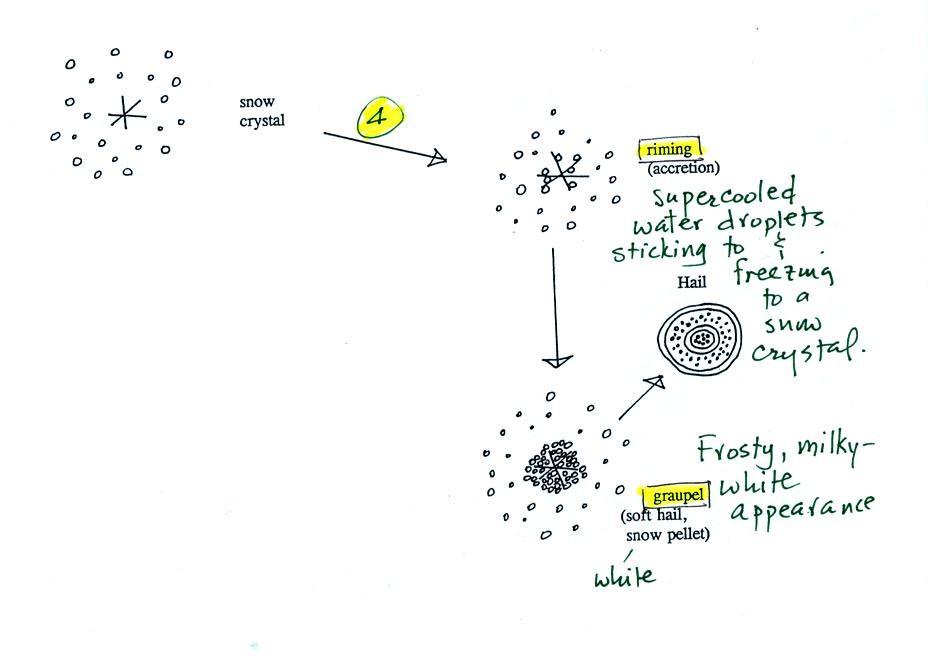 snow
crystal
4
riming
(accretion)
supercooled
water droplets
sticking to &
freezing
to a
snow
crystal.
Hail
Frosty, milky-
white
appearance
graupel
(soft hail,
snow pellet)
white